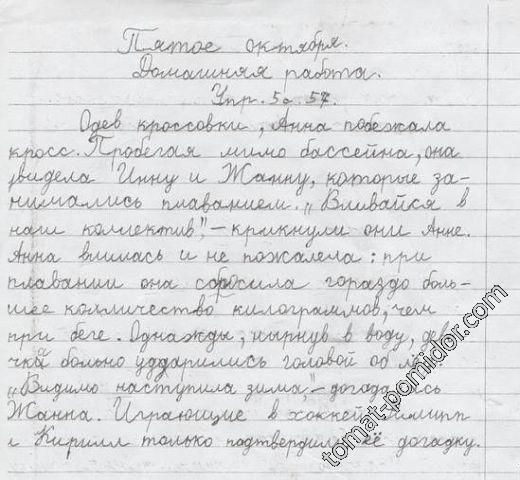 Пятое октября.
Домашняя работа.
Упр. 5а. 57.
Одев кроссовки, Анна побежала
кросс. Пробегая мимо бассейна, она
увидела Инну и Жанну, которые за-
нимались плаванием. „Вливайся в
наш коллектив", – крикнули они Анне.
Анна влилась и не пожалела: при
плавании она сбросила гораздо боль-
шее количество килограммов, чем
при беге. Однажды, нырнув в воду,
больно ударились головой об лёд.
„Видимо наступила зима," –
Жанна. Играющие в хоккей
и Кирилл только подтвердили её догадку.
tomat-pomidor.com